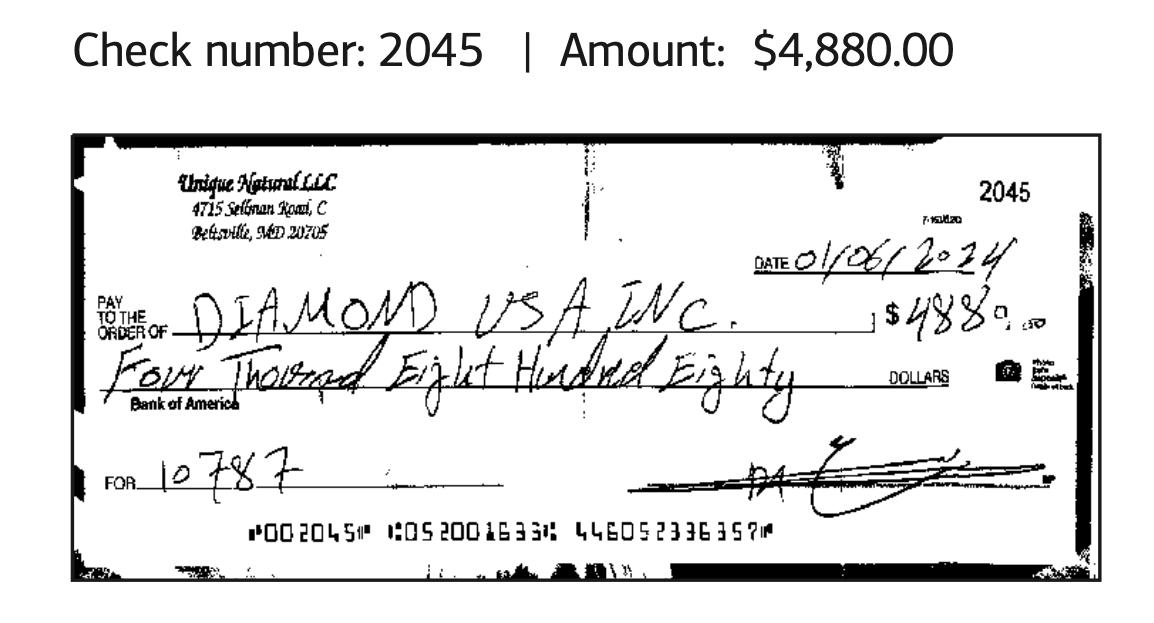 Check number: 2045 | Amount: $4,880.00
Unique Natural LLC
4715 Sellman Road, C
Beltsville, MD 20705
2045
DATE 01/06/2024
PAY
TO THE
ORDER OF DIAMOND USA INC. $4880.00
Four Thousand Eight Hundred Eighty DOLLARS
Bank of America
FOR 10787
⑈002045⑈ ⑆052001633⑆ 446052336357⑈